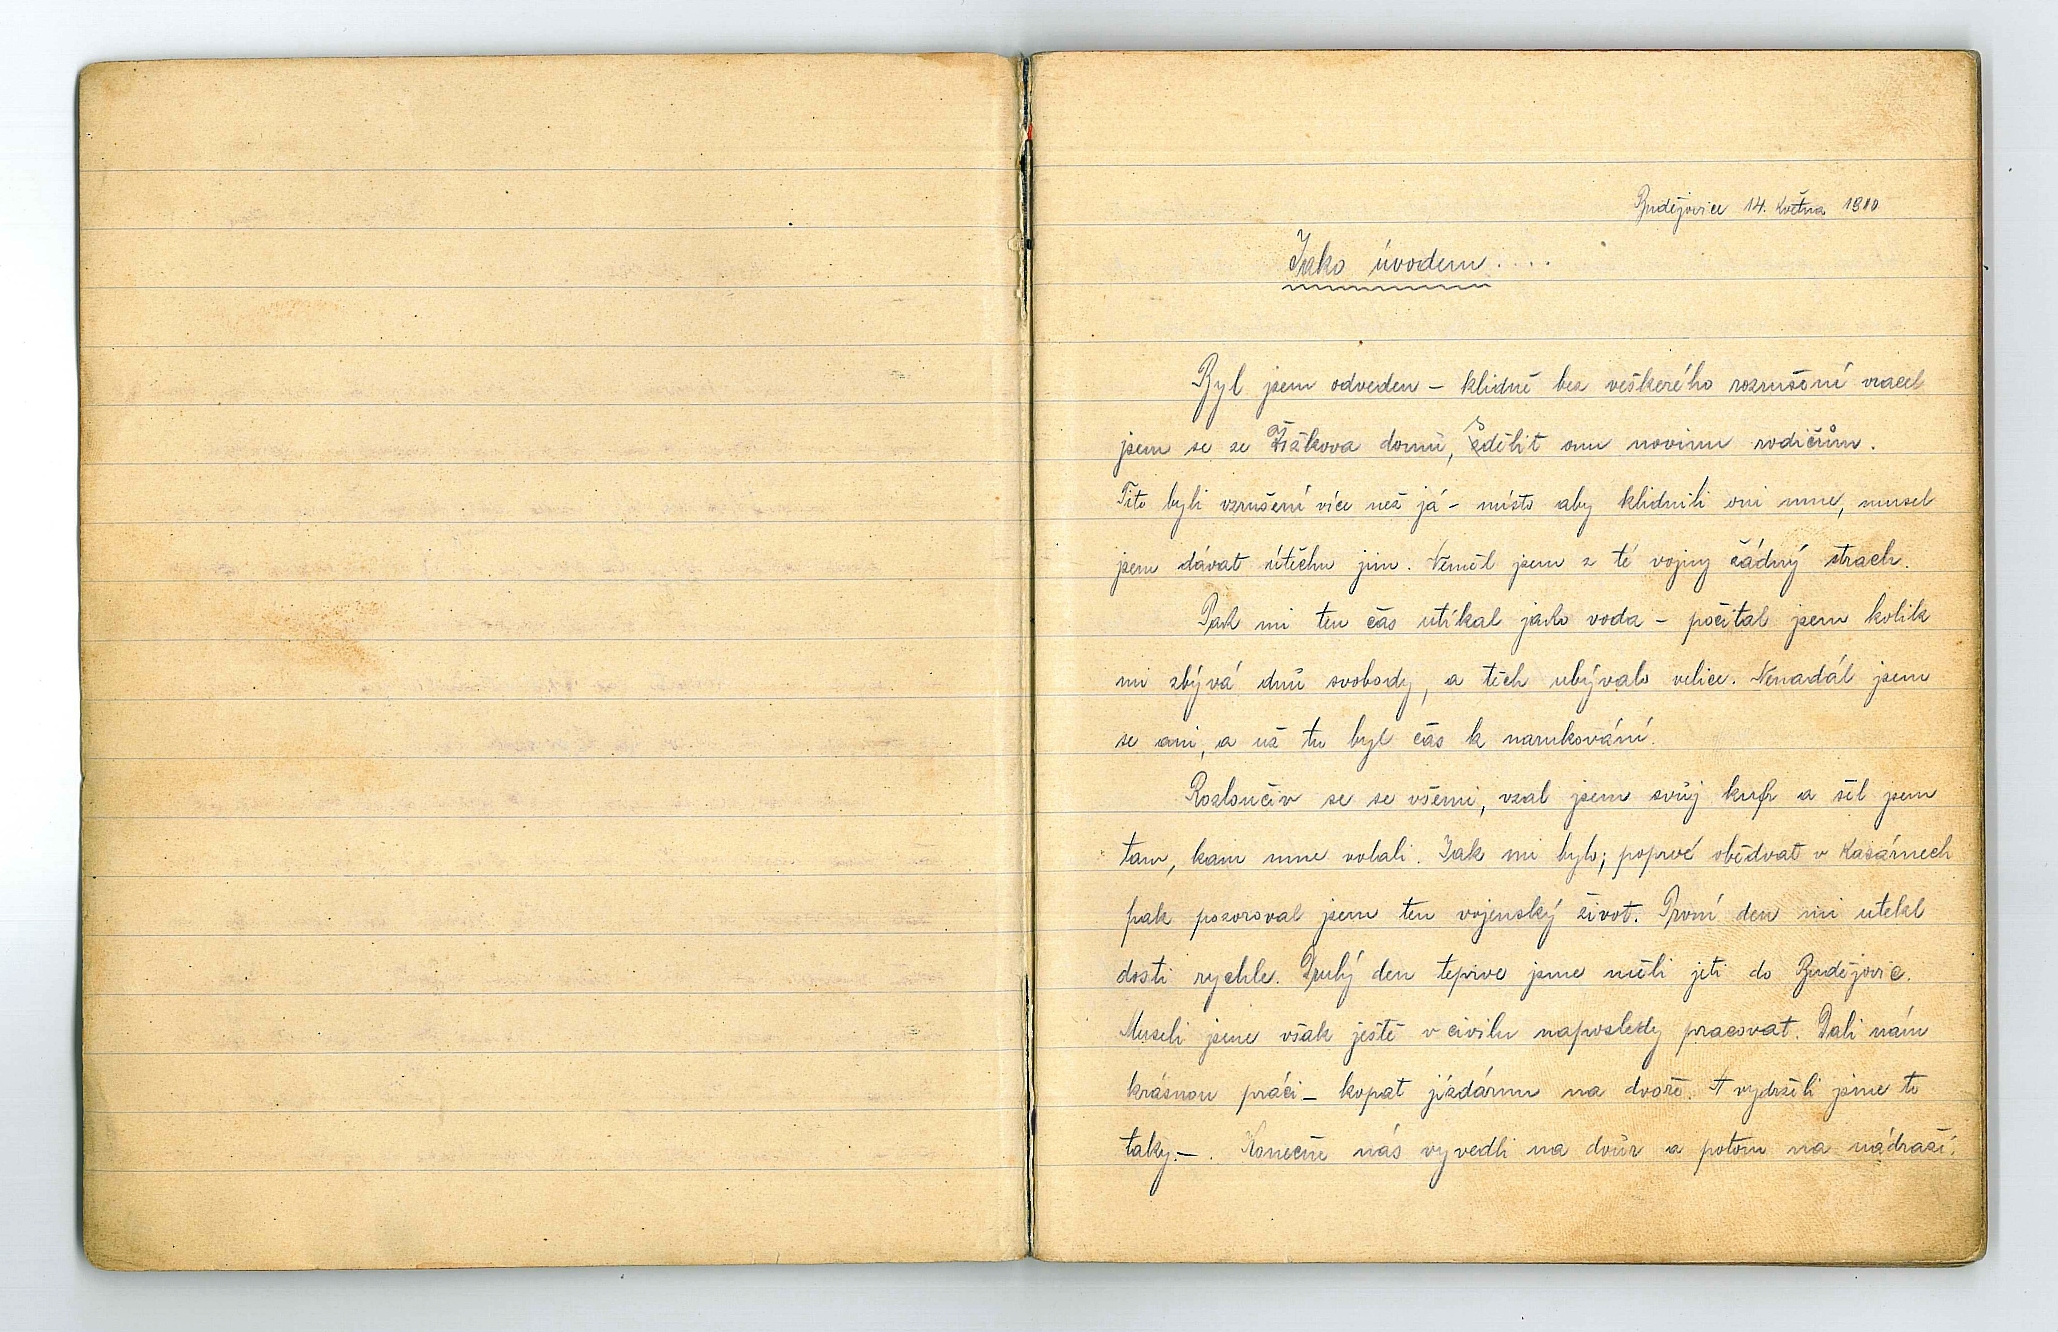 Budějovice 14. května 1910
Jako úvodem....
Byl jsem odveden – klidně bez veškerého rozrušení vracel
jsem se ze Žižkova domů, sdělit onu novinu rodičům.
Tito byli vzrušení více než já – místo aby klidnili oni mne, musel
jsem dávat útěchu jim. Neměl jsem z té vojny žádný strach.
Pak mi ten čas utíkal jako voda – počítal jsem kolik
mi zbývá dnů svobody, a těch ubývalo velice. Nenadál jsem
se ani, a už tu byl čas k narukování.
Rozloučiv se se všemi, vzal jsem svůj kufr a šel jsem
tam, kam mne volali. Jak mi bylo; poprvé obědvat v kasárnech
pak pozoroval jsem ten vojenský život. První den mi utekl
dosti rychle. Druhý den teprve jsme měli jeti do Budějovic.
Museli jsme však ještě v civilu naposledy pracovat. Dali nám
krásnou práci – kopat jízdárnu na dvoře. A vydrželi jsme to
taky. – . Konečně nás vyvedli na dvůr a potom na nádraží.